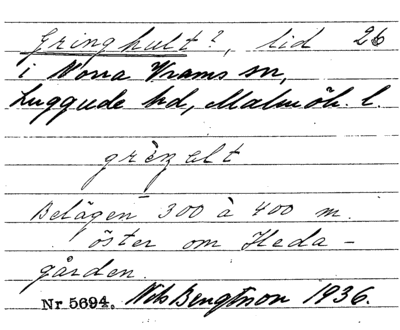 Gringhult?, lid 26
i Norra Vrams sn,
Luggude hd, Malmöh. l.
grèŋelt
Belägen 300 à 400 m.
öster om Heda-
gården.
Nr 5694. Nils Bengtsson 1936.